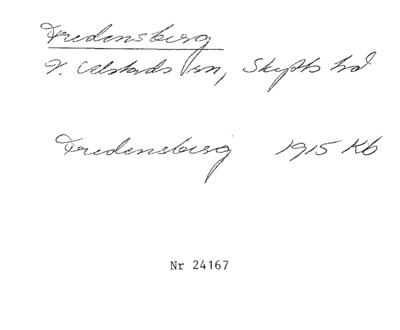 Fredensberg
V. Alstads sn, Skytts hd
Fredensberg 1915 Kb
Nr 24167